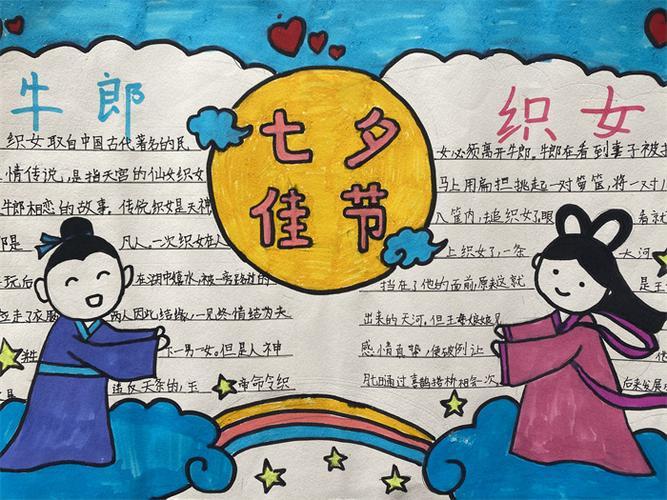 七夕
佳节
牛郎
织女取自中国古代著名的民
情传说，是指天宫的仙女织女
牛郎相恋的故事，传说织女是天神
凡人。一次织女在人
玩后 在湖中嬉水，被一
走了衣服 两人因此结缘，一见然情结为夫
一男一女。但是人神
违反天条的，王 帝命令织
织女
女必须离开牛郎，牛郎在看到妻子被
马上用扁担挑起一对箩筐，将一对
八筐内，追织女了眼 看就
上织女了，一条 大河
挡在了他的面前，原来这就 是王
出来的天河，但王母娘娘见
感情真挚，便破例让
月七通过喜鹊搭桥相会一次， 后来发展